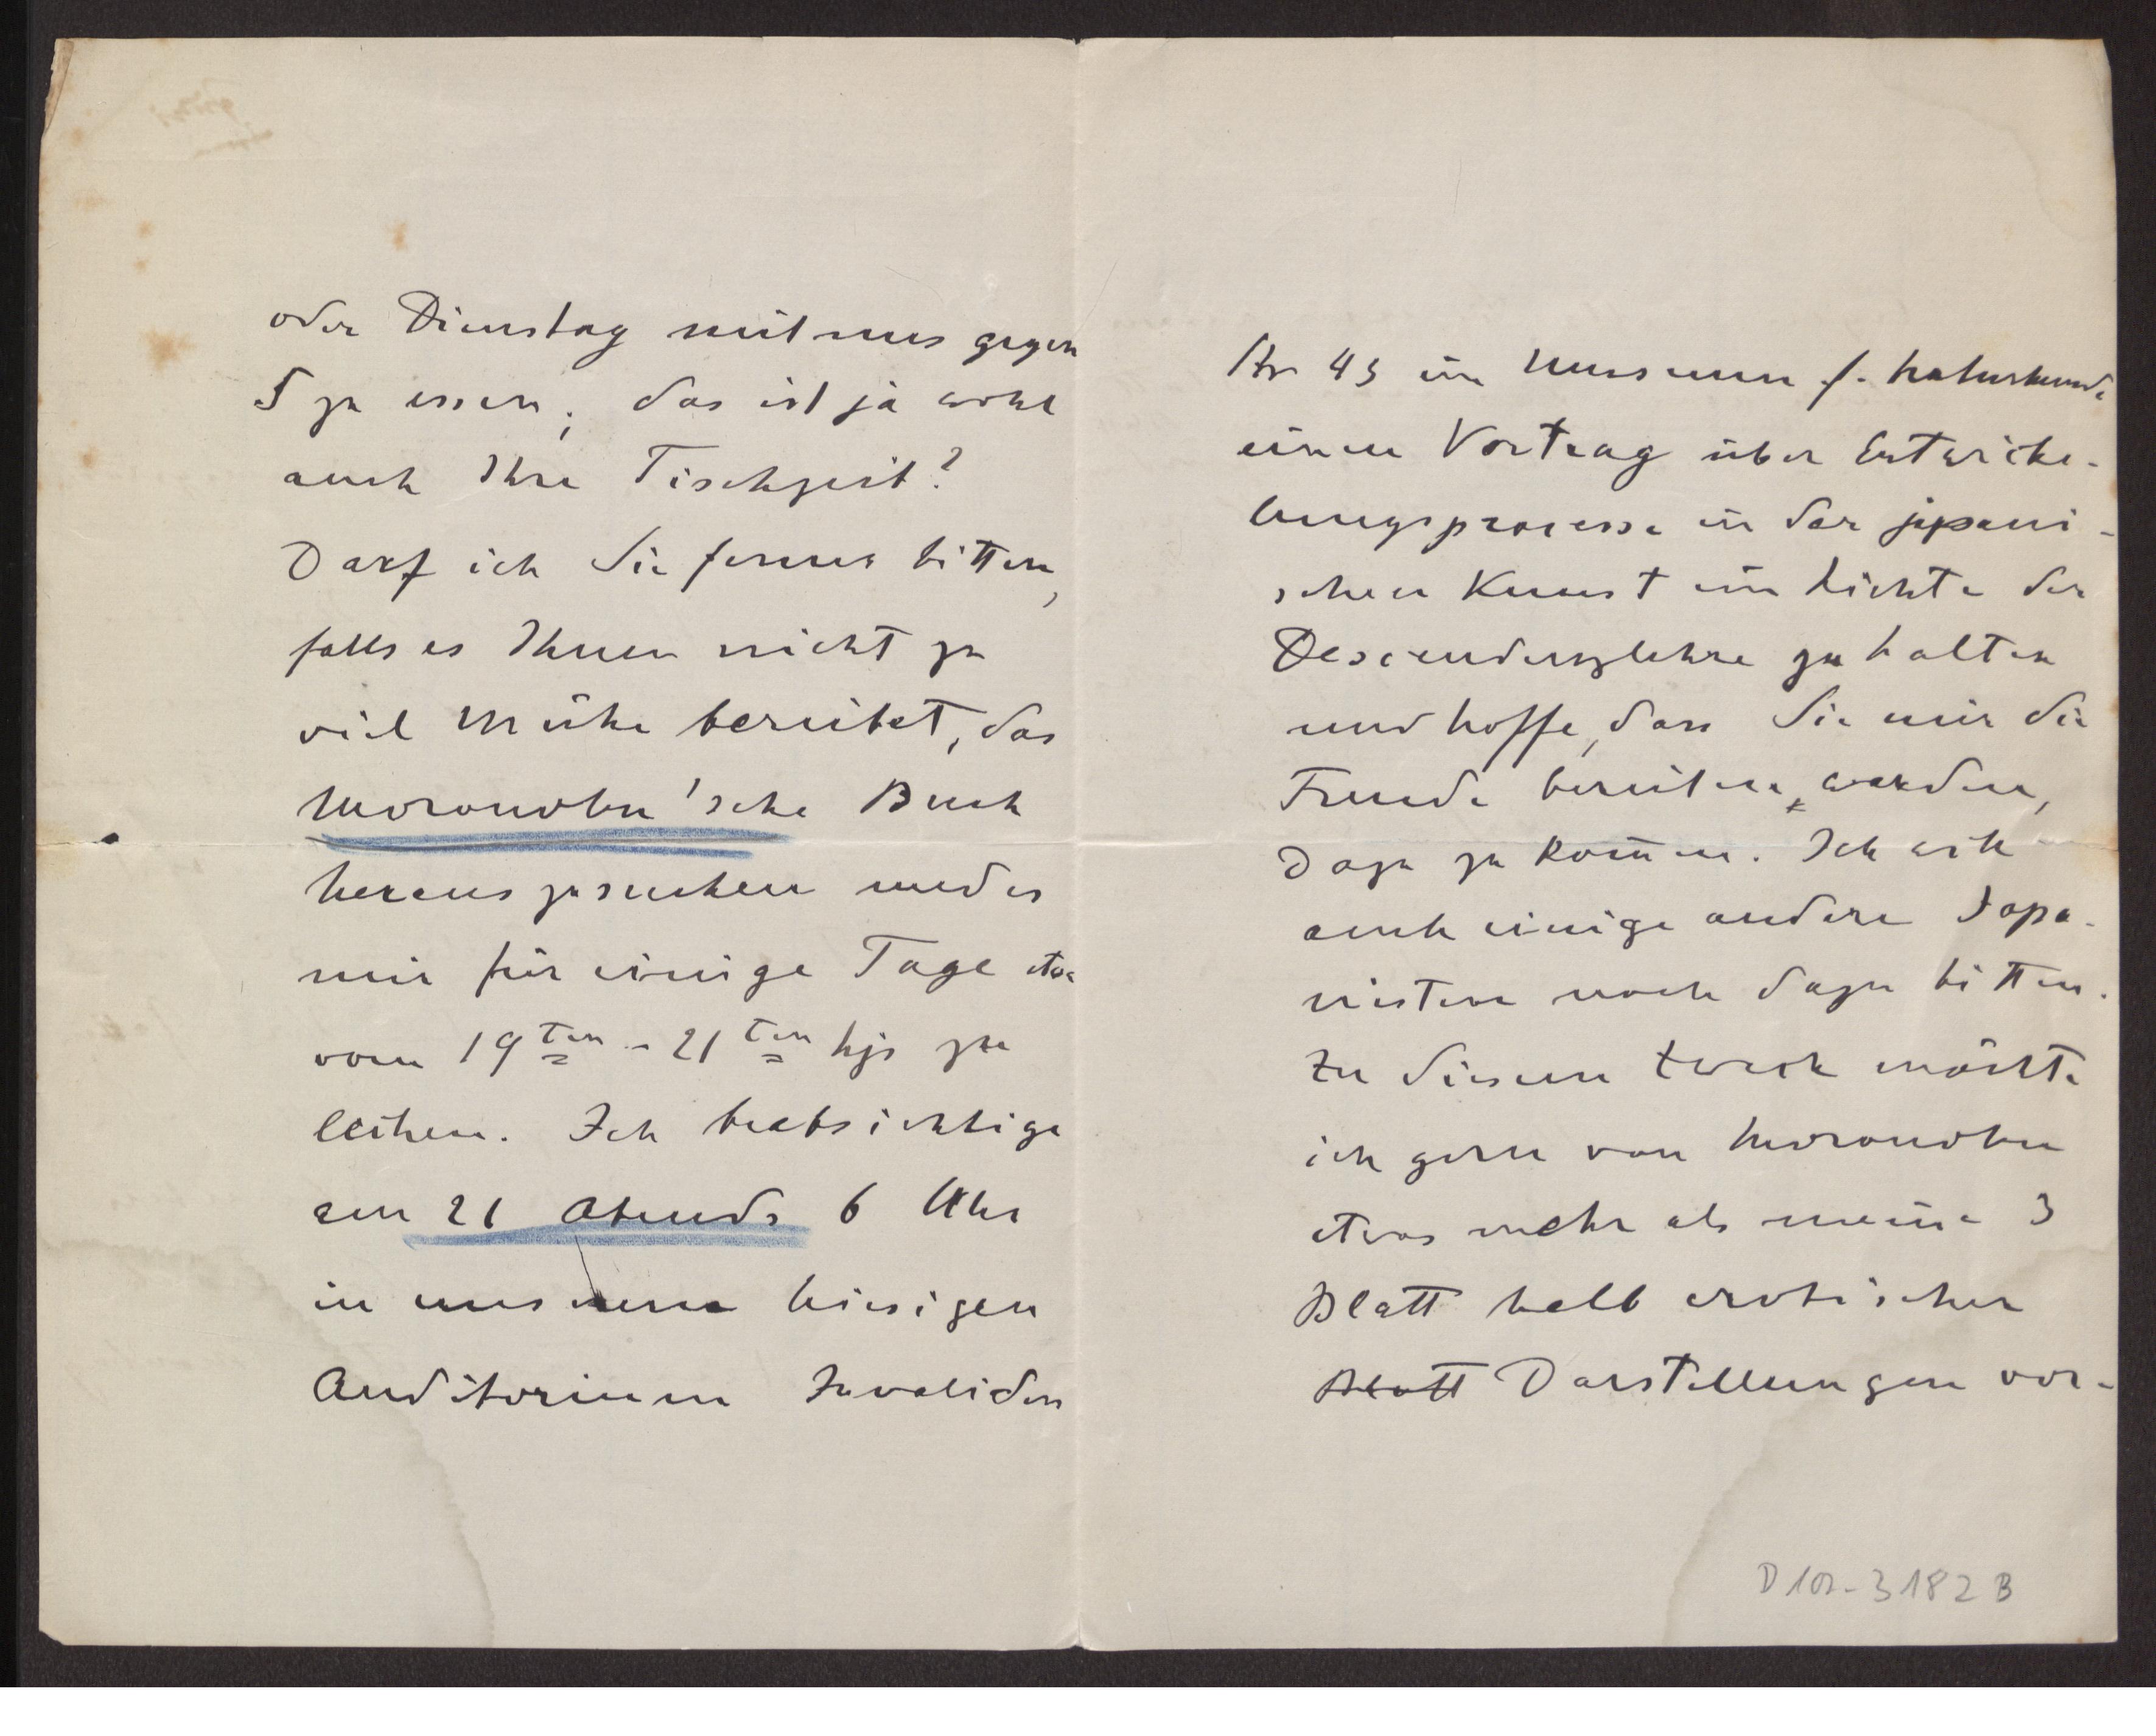 oder Dienstag mit uns gegen
5 zu essen; das ist ja wohl
auch Ihre Tischzeit?
Darf ich Sie ferner bitten,
falls es Ihnen nicht zu
viel Mühe bereitet, das
Moronobu'sche Buch
herauszusuchen und es
mir für einige Tage etwa
vom 19ten - 21ten hjs zu
leihen. Ich beabsichtige
am 21 Abends 6 Uhr
in unserem hiesigen
Auditorium Invaliden
Str 43 im Museum f. Naturkunde
einen Vortrag über Entwicke-
lungsprocesse in der japani-
schen Kunst im Lichte der
Descendenzlehre zu halten
und hoffe, dass Sie mir die
Freude bereiten werden,
dazu zu kom̄en. Ich will
auch einige andere Japa-
nisten noch dazu bitten.
Zu diesem Zweck möchte
ich gern von Moronobu
etwas mehr als meine 3
Blatt halb erotischer
Blatt Darstellungen vor-
D 102-3182 B